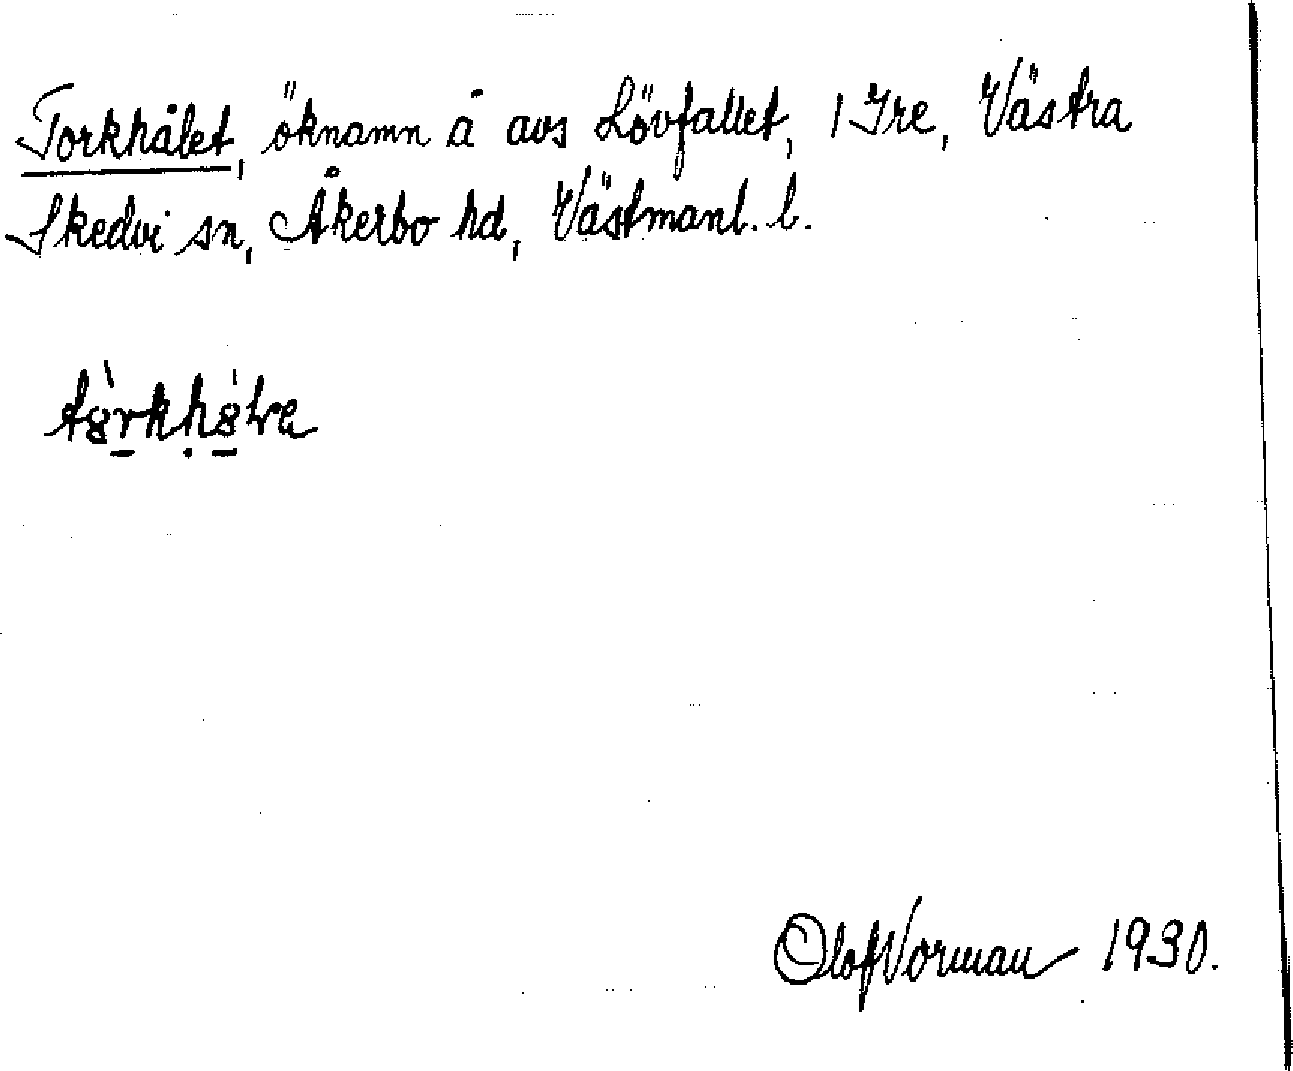 Torkhålet, öknamn å avs Lövfallet, 1 Ire, Västra
Skedvi sn, Åkerbo hd, Västmanl. l.
Olof Vorman 1930.